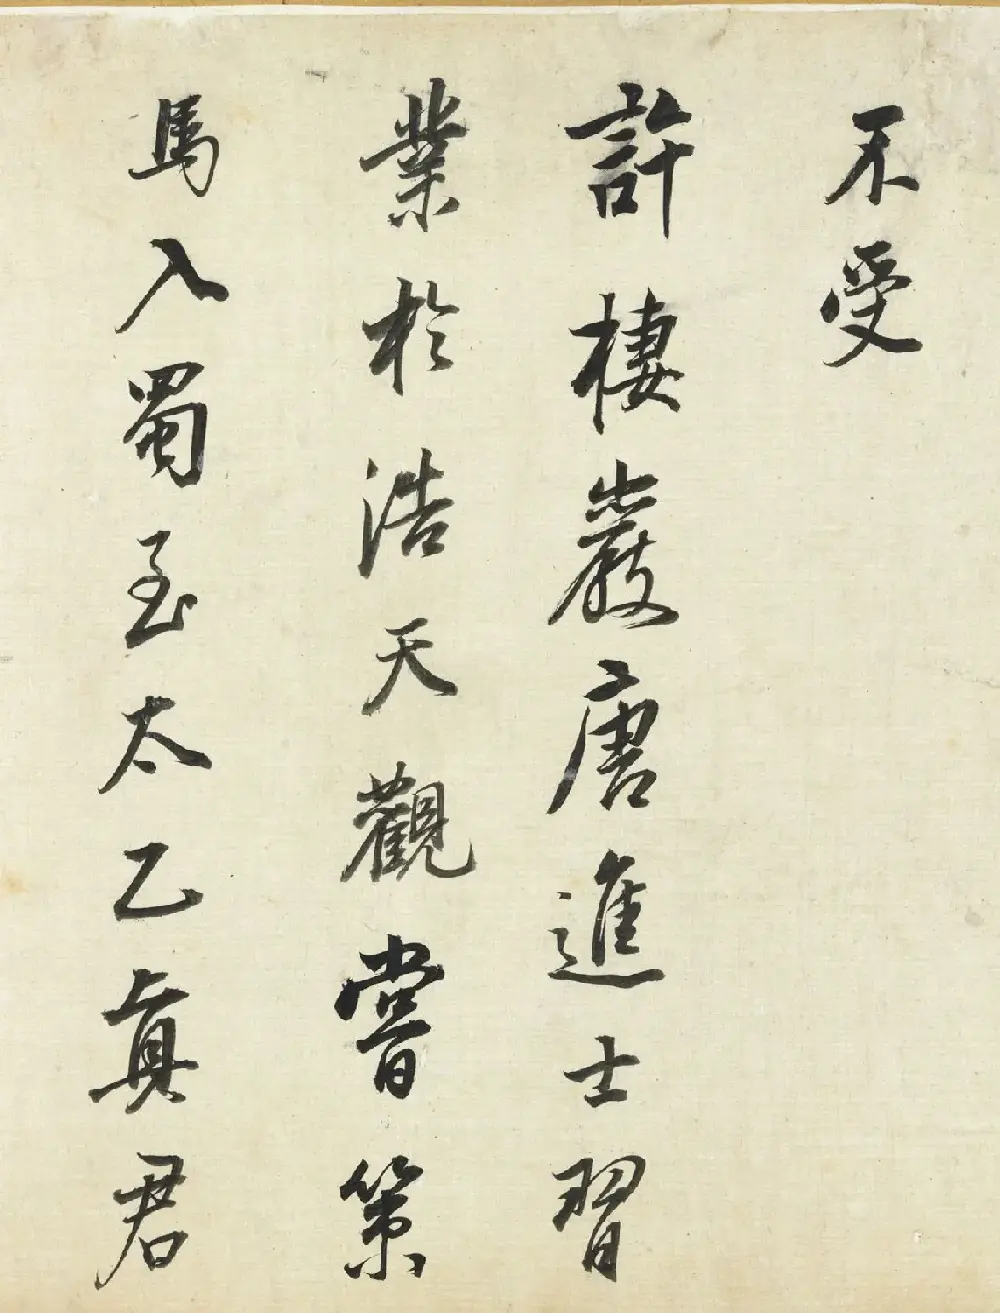 不受
許棲巖唐進士習
業於浩天觀嘗策
馬入蜀至太乙真君